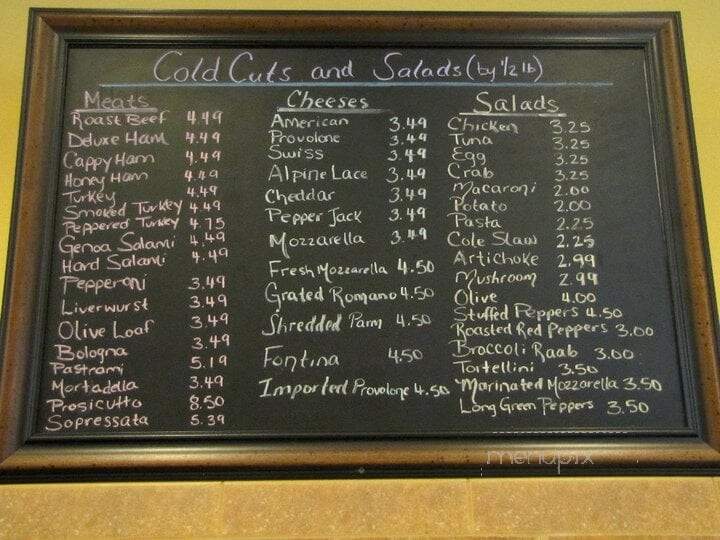 Cold Cuts and Salads (by 1/2 lb)
Meats
Roast Beef 4.49
Deluxe Ham 4.49
Cappy Ham 4.49
Honey Ham 4.49
Turkey 4.49
Smoked Turkey 4.49
Peppered Turkey 4.75
Genoa Salami 4.49
Hard Salami 4.49
Pepperoni 3.49
Liverwurst 3.49
Olive Loaf 3.49
Bologna 3.49
Pastrami 5.19
Mortadella 3.49
Prosicutto 8.50
Sopressata 5.39
Cheeses
American 3.49
Provolone 3.49
Swiss 3.49
Alpine Lace 3.49
Cheddar 3.49
Pepper Jack 3.49
Mozzarella 3.49
Fresh Mozzarella 4.50
Grated Romano 4.50
Shredded Parm 4.50
Fontina 4.50
Imported Provolone 4.50
Salads
Chicken 3.25
Tuna 3.25
Egg 3.25
Crab 3.25
Macaroni 2.00
Potato 2.00
Pasta 2.25
Cole Slaw 2.25
Artichoke 2.99
Mushroom 2.99
Olive 4.00
Stuffed Peppers 4.50
Roasted Red Peppers 3.00
Broccoli Raab 3.00
Tortellini 3.50
Marinated Mozzarella 3.50
Long Green Peppers 3.50
menupix